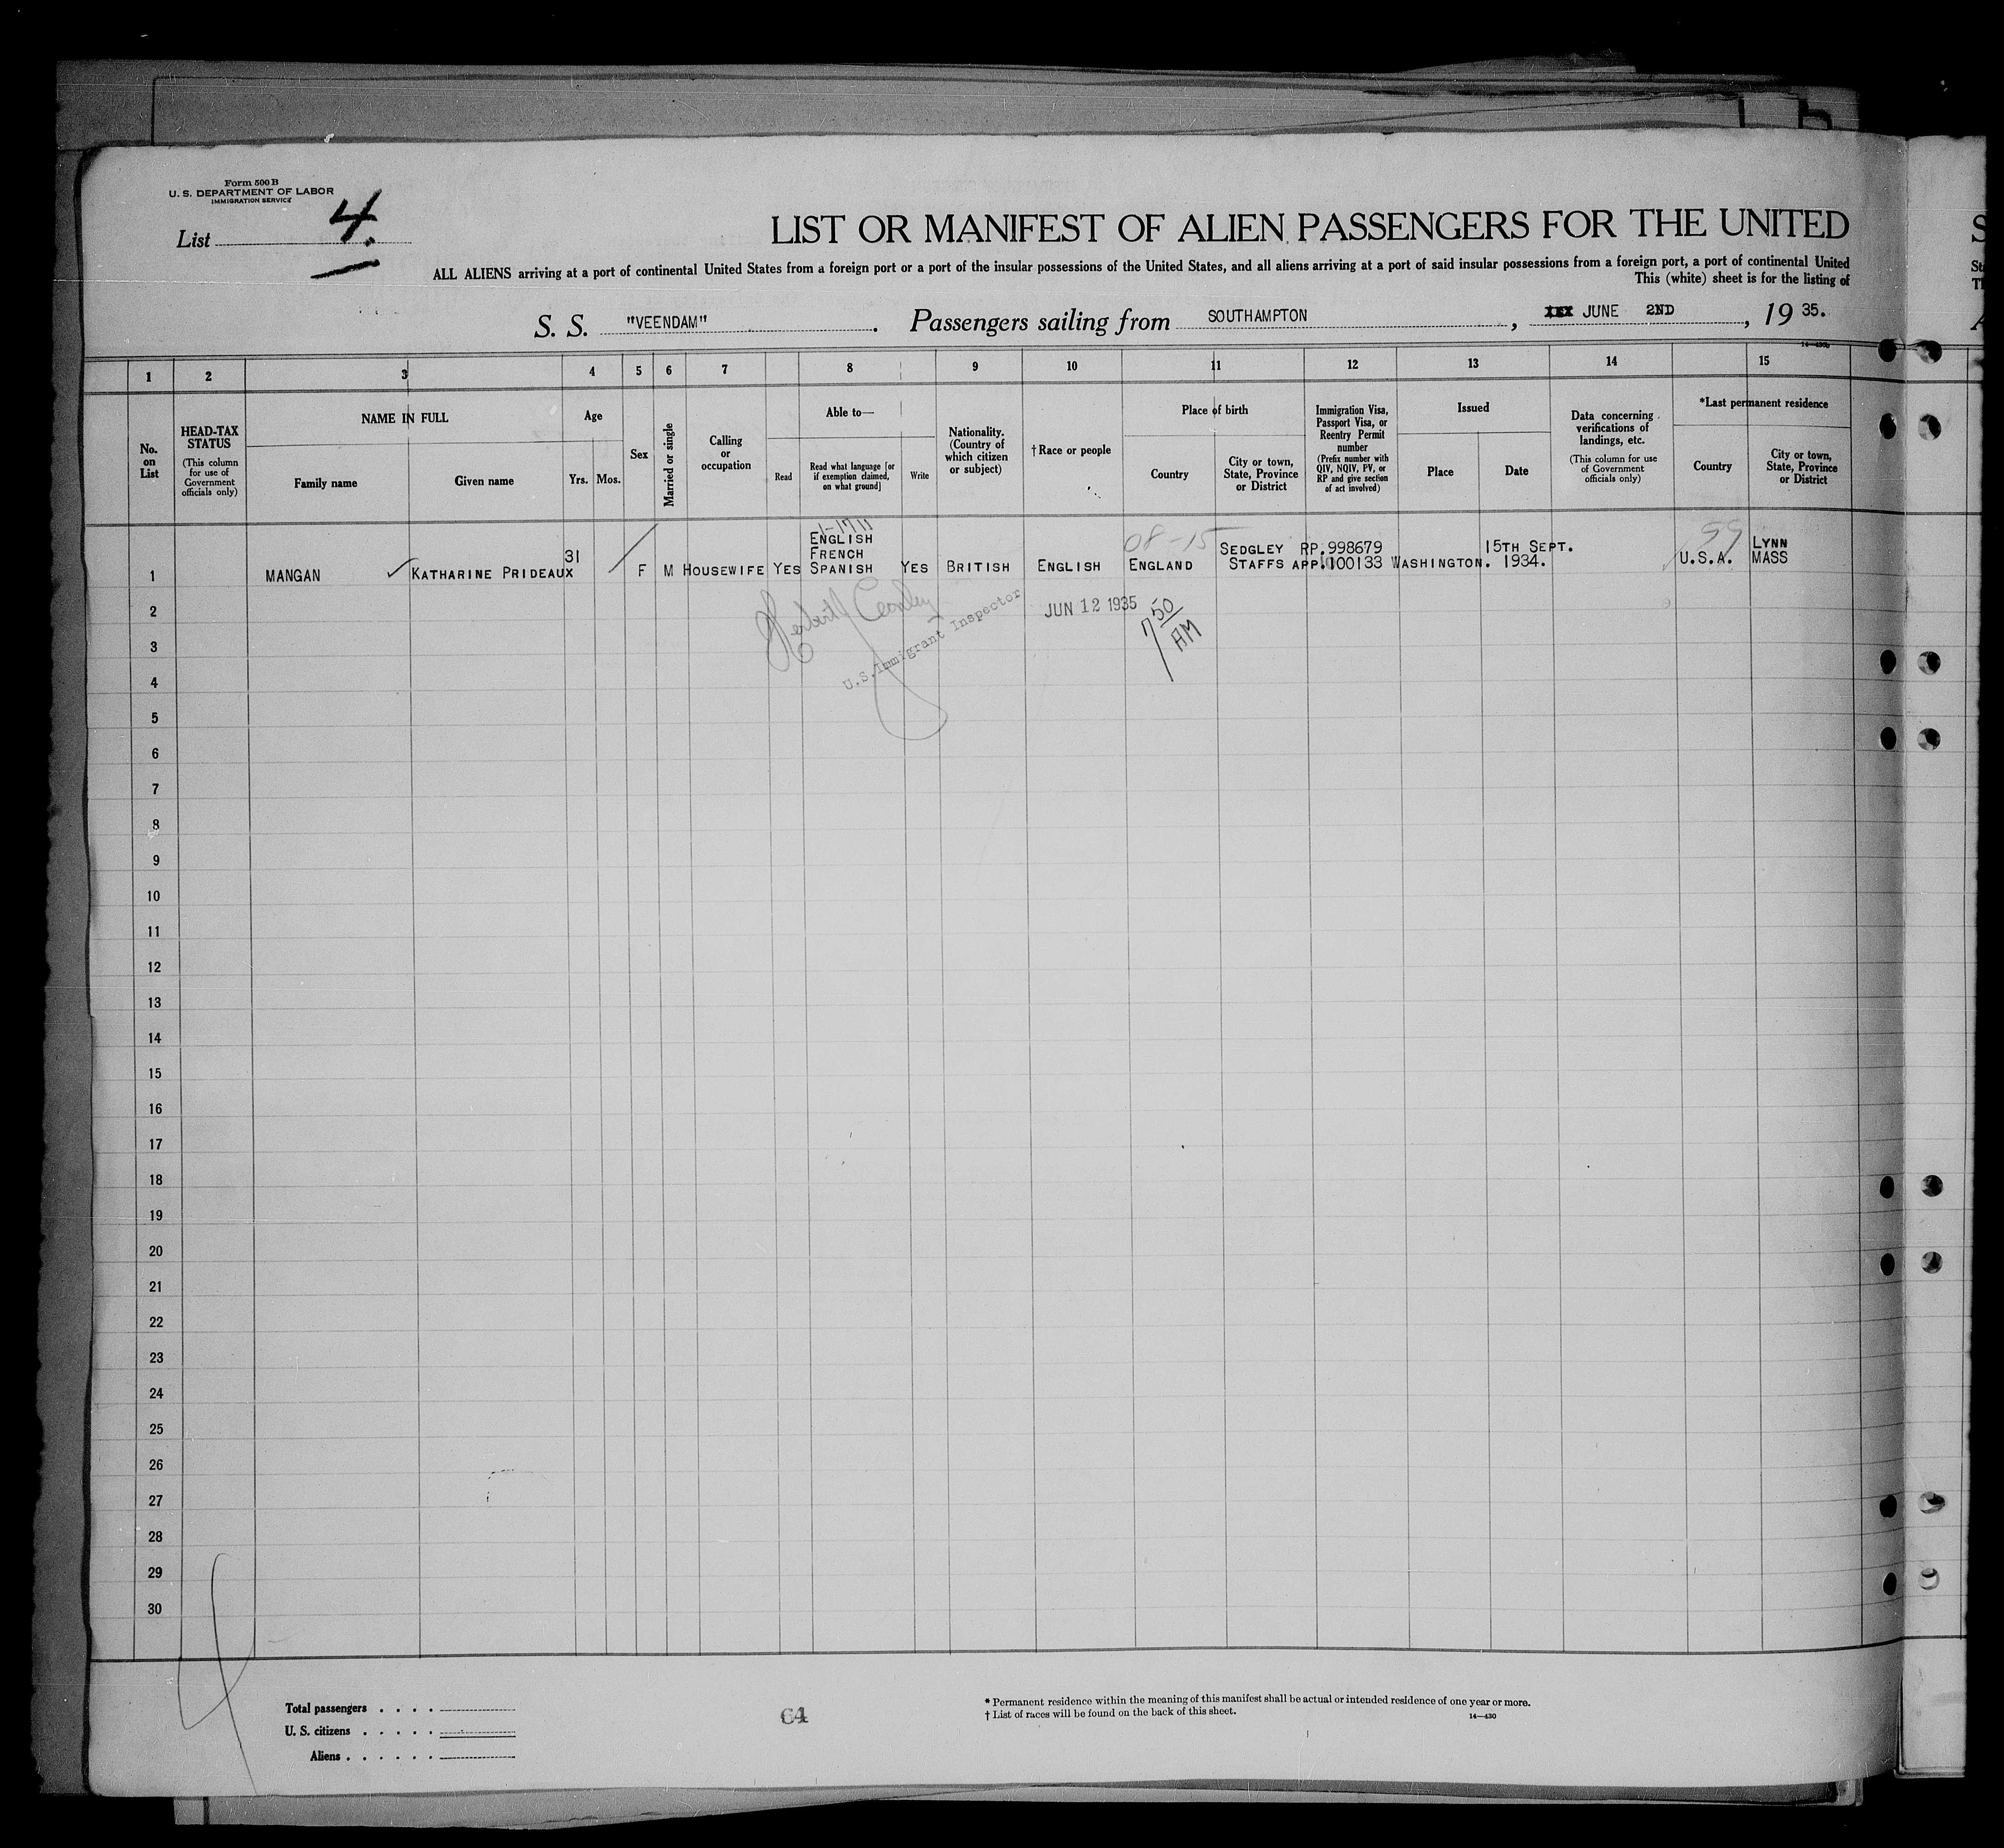 Form 500 B
U. S. DEPARTMENT OF LABOR
IMMIGRATION SERVICE
List 4.
LIST OR MANIFEST OF ALIEN PASSENGERS FOR THE UNITED
ALL ALIENS arriving at a port of continental United States from a foreign port or a port of the insular possessions of the United States, and all aliens arriving at a port of said insular possessions from a foreign port, a port of continental United
This (white) sheet is for the listing of
S. S. "VEENDAM" . Passengers sailing from SOUTHAMPTON , JUNE 2ND , 19 35.
1 2 3 4 5 6 7 8 9 10 11 12 13 14 15
No. on List
HEAD-TAX STATUS
(This column for use of Government officials only)
NAME IN FULL
Family name
Given name
Age
Yrs. Mos.
Sex
Married or single
Calling or occupation
Able to—
Read
Read what language [or if exemption claimed, on what ground]
Write
Nationality. (Country of which citizen or subject)
† Race or people
Place of birth
Country
City or town, State, Province or District
Immigration Visa, Passport Visa, or Reentry Permit number
(Prefix number with QIV, NQIV, PV, or RP and give section of act involved)
Issued
Place
Date
Data concerning verifications of landings, etc.
(This column for use of Government officials only)
*Last permanent residence
Country
City or town, State, Province or District
08-15 99
ENGLISH SEDGLEY RP.998679 15TH SEPT. LYNN
31 FRENCH
1 MANGAN KATHARINE PRIDEAUX F M HOUSEWIFE YES SPANISH YES BRITISH ENGLISH ENGLAND STAFFS APP.100133 WASHINGTON. 1934. U.S.A. MASS
2 JUN 12 1935 7 50 AM
U.S. Immigrant Inspector
3
4
5
6
7
8
9
10
11
12
13
14
15
16
17
18
19
20
21
22
23
24
25
26
27
28
29
30
Total passengers . . . .
U. S. citizens . . . . .
Aliens . . . . . .
64
* Permanent residence within the meaning of this manifest shall be actual or intended residence of one year or more.
† List of races will be found on the back of this sheet.
14—430